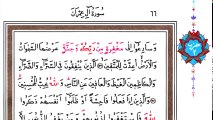 سُورَةُ آلِ عِمْرَانَ ٦٦
وَسَارِعُوا إِلَى مَغْفِرَةٍ مِنْ رَبِّكُمْ وَجَنَّةٍ عَرْضُهَا السَّمٰوَاتُ
وَالْأَرْضُ أُعِدَّتْ لِلْمُتَّقِينَ الَّذِينَ يُنْفِقُونَ فِي السَّرَّاءِ وَالضَّرَّاءِ
وَالْكَاظِمِينَ الْغَيْظَ وَالْعَافِينَ عَنِ النَّاسِ وَاللّٰهُ يُحِبُّ الْمُحْسِنِينَ
وَالَّذِينَ إِذَا فَعَلُوا فَاحِشَةً أَوْ ظَلَمُوا أَنْفُسَهُمْ ذَكَرُوا
اللّٰهَ